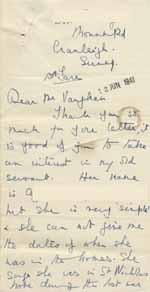 Road
Cranleigh.
Surrey.
12 JUN 1941
Dear Mr Vaughan
Thank you so
much for your letter, it
is good of you to take
an interest in my old
servant. Her name
is
but. She is very simple
& she can not give me
the dates of when she
was in the homes. She
says she was in St Nicholas
home during the last war